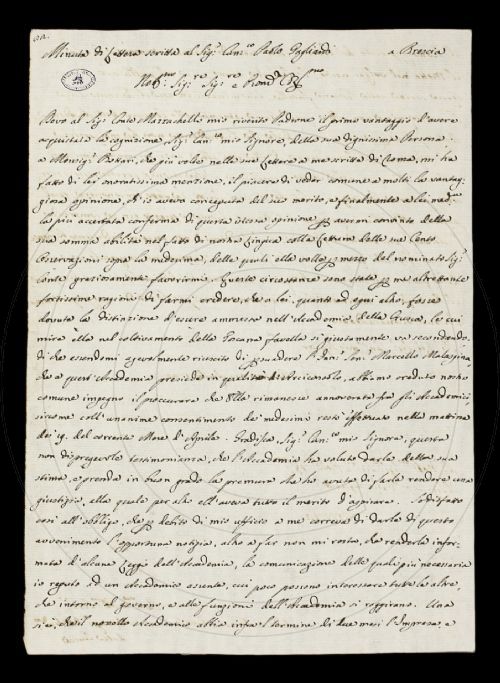 Minuta di Lettera scritta al Sig.r Can.co Paolo Gagliardi a Brescia
Sig.re Sig.re e Pron.e
Devo al Sig.r Conte Mazzuchelli mio riverito Padrone il primo vantaggio d'avere
acquistata la cognizione, Sig.r Can.co mio Signore, della sua degnissima Persona:
a Monsig.r Bottari, che più volte nelle sue Lettere a me scritte di Roma, mi ha
fatto di lei onoratissima menzione, il piacere di veder comune a molti la vantag-
giosa opinione, ch'io avevo conceputa del suo merito, e finalmente a lei med.ma
la più accertata conferma di questa stessa opinione per avermi convinto della
sua somma abilità nel fatto di nostra Lingua colla Lettura delle sue Cento
Osservazioni sopra la medesima, delle quali ella volle per mezzo del nominato Sig.r
Conte graziosamente favorirmi. Queste circostanze sono state per me altrettante
fortissime ragioni di farmi credere, che a lei, quanto ad ogni altro, fosse
dovuta la distinzione d'essere annoverato nell'Accademia della Crusca, le cui
mire ella nel coltivamento della Toscana favella sì giustamente va secondando.
di che essendomi agevolmente riuscito di persuadere l' Marcello Malaspina,
che a quest'Accademia presiede in qualità di Arciconsolo, abbiamo creduto nostro
comune impegno il proccurare che Ella rimanesse annoverata fra gli Accademici,
siccome coll'unanime consentimento dei medesimi restò effettuato nella mattina
dei 19. del corrente Mese d'Aprile. Gradisca, Sig.r Can.co mio Signore, questa
non dispregevole testimonianza, che l'Accademia ha voluto darle della sua
stima, e prenda in buon grado la premura che ho avuta di farle rendere una
giustizia, alla quale per altro ell'aveva tutto il merito d'aspirare. Soddisfatto
così all'obbligo, che per debito di mio ufficio a me correva di darle di questo
avvenimento l'opportuna notizia, altro a far non mi resta, che renderla infor-
mata d'alcune Leggi dell'Accademia, la comunicazione delle quali più necessaria
io reputo ad un Accademico assente, cui poco possono interessare tutte le altre,
che intorno al governo, e alle funzioni dell'Accademia si raggirano. Una
si è, che il novello Accademico abbia infra l'termine di due mesi l'Impresa, e